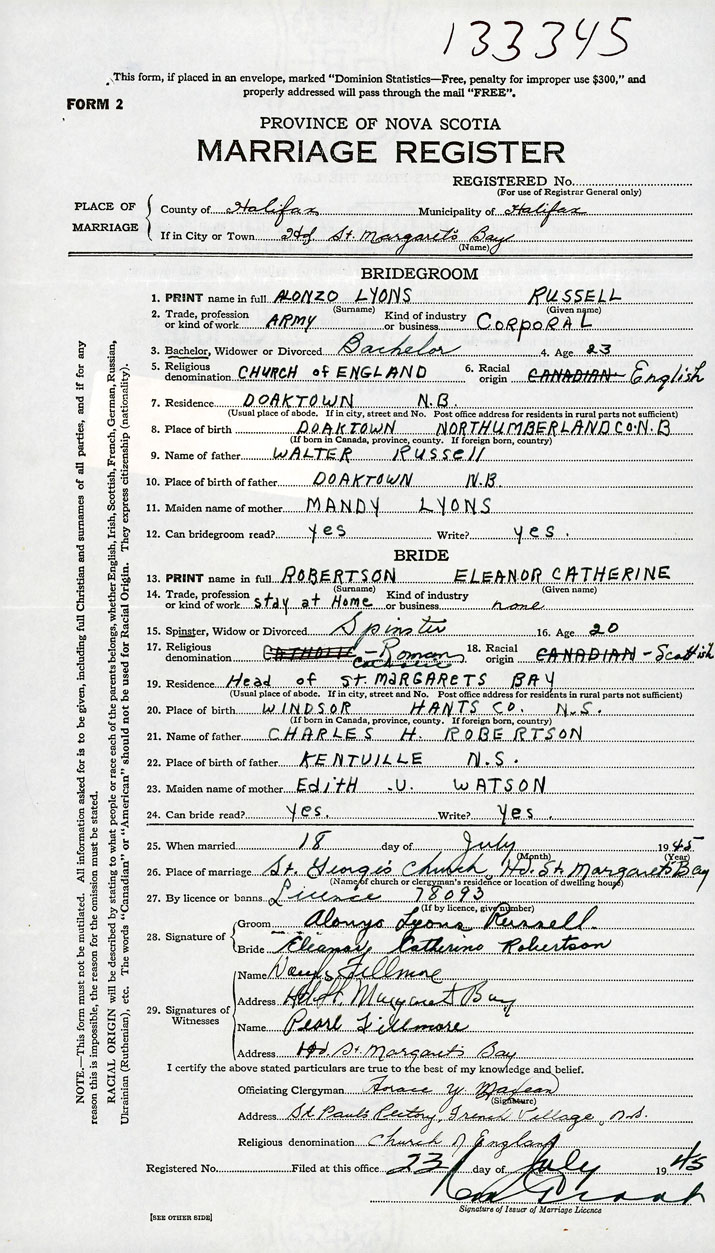 133345
This form, if placed in an envelope, marked "Dominion Statistics—Free, penalty for improper use $300," and
properly addressed will pass through the mail "FREE".
FORM 2
PROVINCE OF NOVA SCOTIA
MARRIAGE REGISTER
REGISTERED No.
(For use of Registrar General only)
PLACE OF MARRIAGE
County of Halifax Municipality of Halifax
If in City or Town Hd. St. Margaret's Bay
(Name)
BRIDEGROOM
1. PRINT name in full ALONZO LYONS RUSSELL
(Surname) (Given name)
2. Trade, profession or kind of work ARMY Kind of industry or business CORPORAL
3. Bachelor, Widower or Divorced Bachelor 4. Age 23
5. Religious denomination CHURCH of ENGLAND 6. Racial origin CANADIAN English
7. Residence DOAKTOWN N.B.
(Usual place of abode. If in city, street and No. Post office address for residents in rural parts not sufficient)
8. Place of birth DOAKTOWN NORTHUMBERLAND CO. N.B
(If born in Canada, province, county. If foreign born, country)
9. Name of father WALTER RUSSEll
10. Place of birth of father DOAKTOWN N.B.
11. Maiden name of mother MANDY LYONS
12. Can bridegroom read? yes Write? yes.
BRIDE
13. PRINT name in full ROBERTSON ELEANOR CATHERINE
(Surname) (Given name)
14. Trade, profession or kind of work stay at Home Kind of industry or business none
15. Spinster, Widow or Divorced Spinster 16. Age 20
17. Religious denomination CATHOLIC - Roman Catholic 18. Racial origin CANADIAN - Scottish
19. Residence Head of ST. MARGARETS BAY
(Usual place of abode. If in city, street and No. Post office address for residents in rural parts not sufficient)
20. Place of birth WINDSOR HANTS CO. N.S.
(If born in Canada, province, county. If foreign born, country)
21. Name of father CHARLES H. ROBERTSON
22. Place of birth of father KENTVILLE N.S.
23. Maiden name of mother EdiTH .U. WATSON
24. Can bride read? yes. Write? yes.
25. When married 18 day of July 1945
(Month) (Year)
26. Place of marriage St. George's Church, Hd. St. Margaret's Bay
(Name of church or clergyman's residence or location of dwelling house)
27. By licence or banns Licence 78093
(If by licence, give number)
28. Signature of
Groom Alonzo Lyons Russell.
Bride Eleanor Catherine Robertson
29. Signatures of Witnesses
Name Fillmore
Address Hd. St. Margaret Bay
Name Pearl Fillmore
Address Hd St. Margaret's Bay
I certify the above stated particulars are true to the best of my knowledge and belief.
Officiating Clergyman Horace Y. MacLean
(Signature)
Address St. Pauls Rectory, French Village, N.S.
Religious denomination Church of England
Registered No. Filed at this office 23 day of July 1945
Signature of Issuer of Marriage Licence
[SEE OTHER SIDE]
NOTE.—This form must not be mutilated. All information asked for is to be given, including full Christian and surnames of all parties, and if for any
reason this is impossible, the reason for the omission must be stated.
RACIAL ORIGIN will be described by stating to what people or race each of the parents belongs, whether English, Irish, Scottish, French, German, Russian,
Ukrainian (Ruthenian), etc. The words "Canadian" or "American" should not be used for Racial Origin. They express citizenship (nationality).